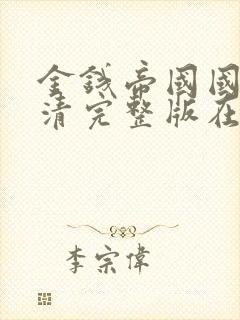 金錢帝國國
清完整版在
李宗偉